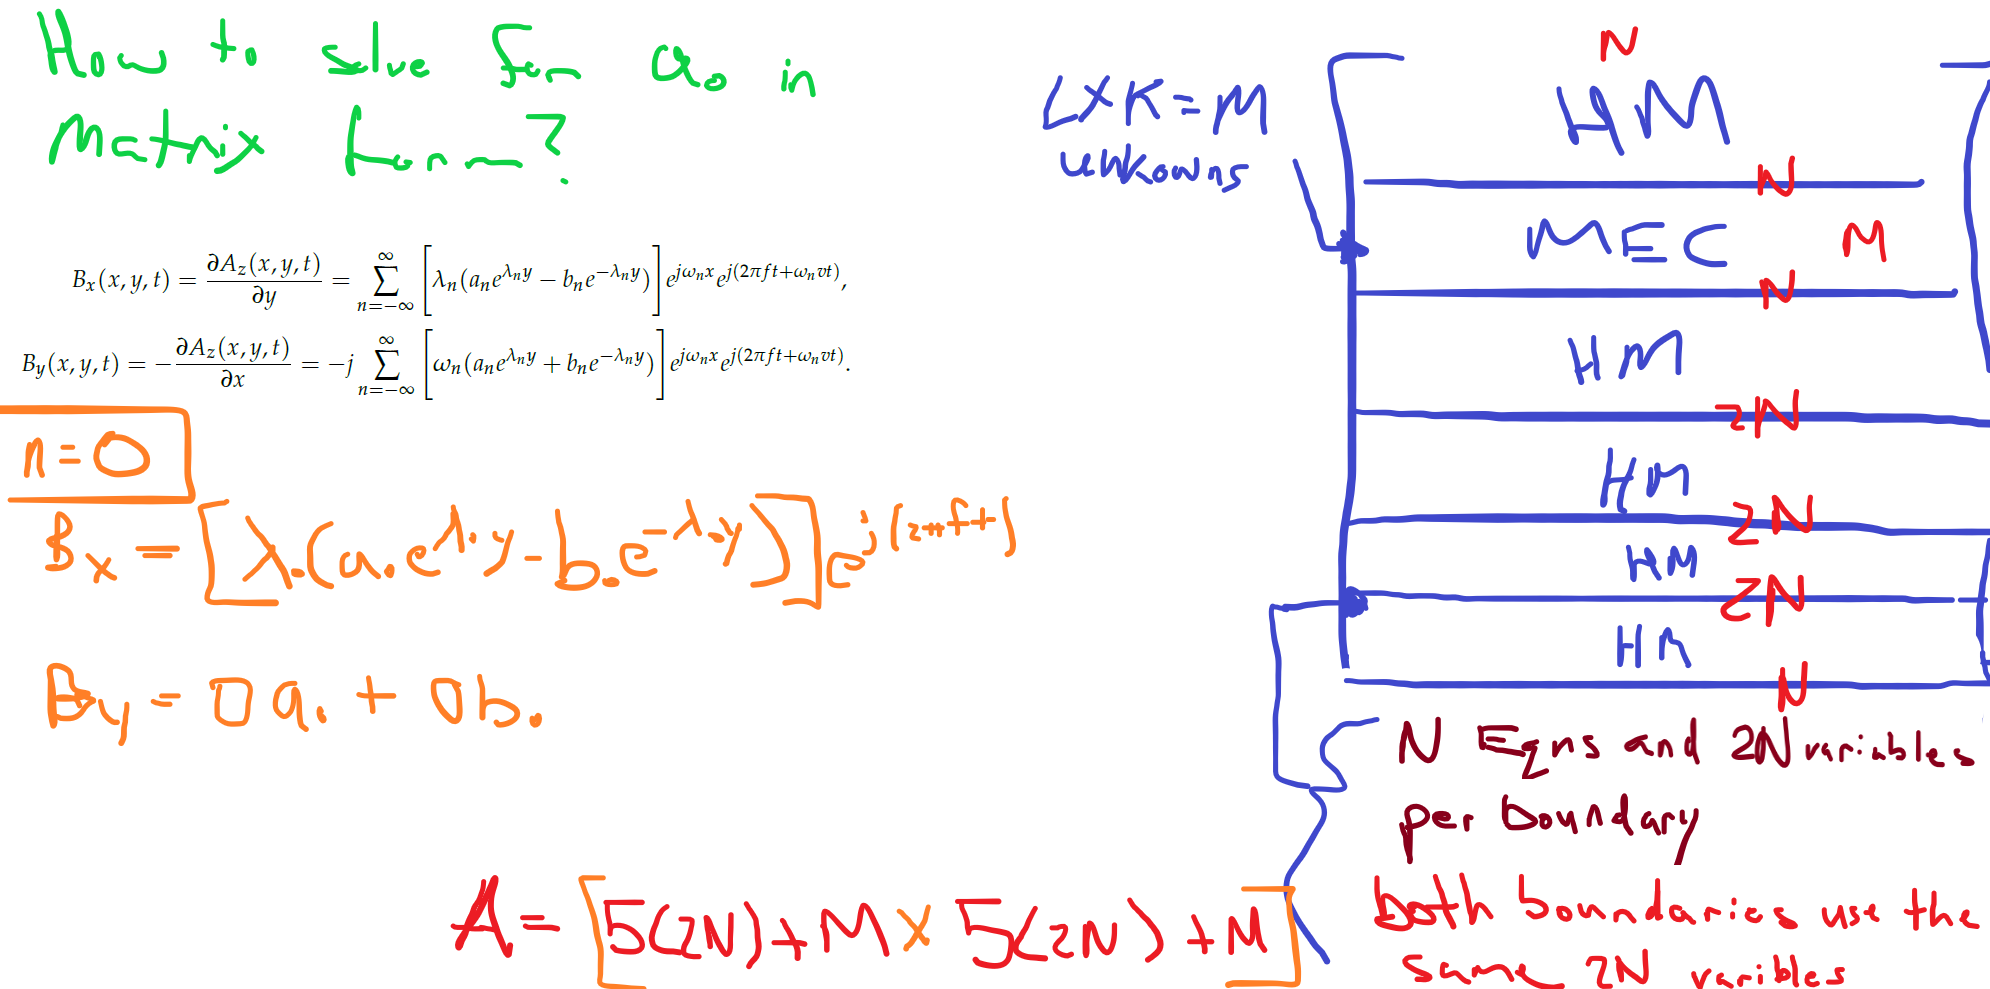 How to solve for a₀ in
Matrix form?
B_x(x,y,t) = ∂A_z(x,y,t)/∂y = ∑_{n=−∞}^{∞} [λ_n(a_n e^{λ_n y} − b_n e^{−λ_n y})] e^{jω_n x} e^{j(2πft+ω_n vt)},
B_y(x,y,t) = −∂A_z(x,y,t)/∂x = −j ∑_{n=−∞}^{∞} [ω_n(a_n e^{λ_n y} + b_n e^{−λ_n y})] e^{jω_n x} e^{j(2πft+ω_n vt)}.
n=0
B_x = [λ₀(a₀e^{λ₀y} − b₀e^{−λ₀y})]e^{j(2πft)}
B_y = 0a₀ + 0b₀
A = [5(2N)+M × 5(2N)+M]
LXK=M
unkowns
N
HM
N
MEC M
N
HM
2N
HM
2N
HM
2N
HM
N
N Eqns and 2N variables
per boundary
both boundaries use the
same 2N varibles